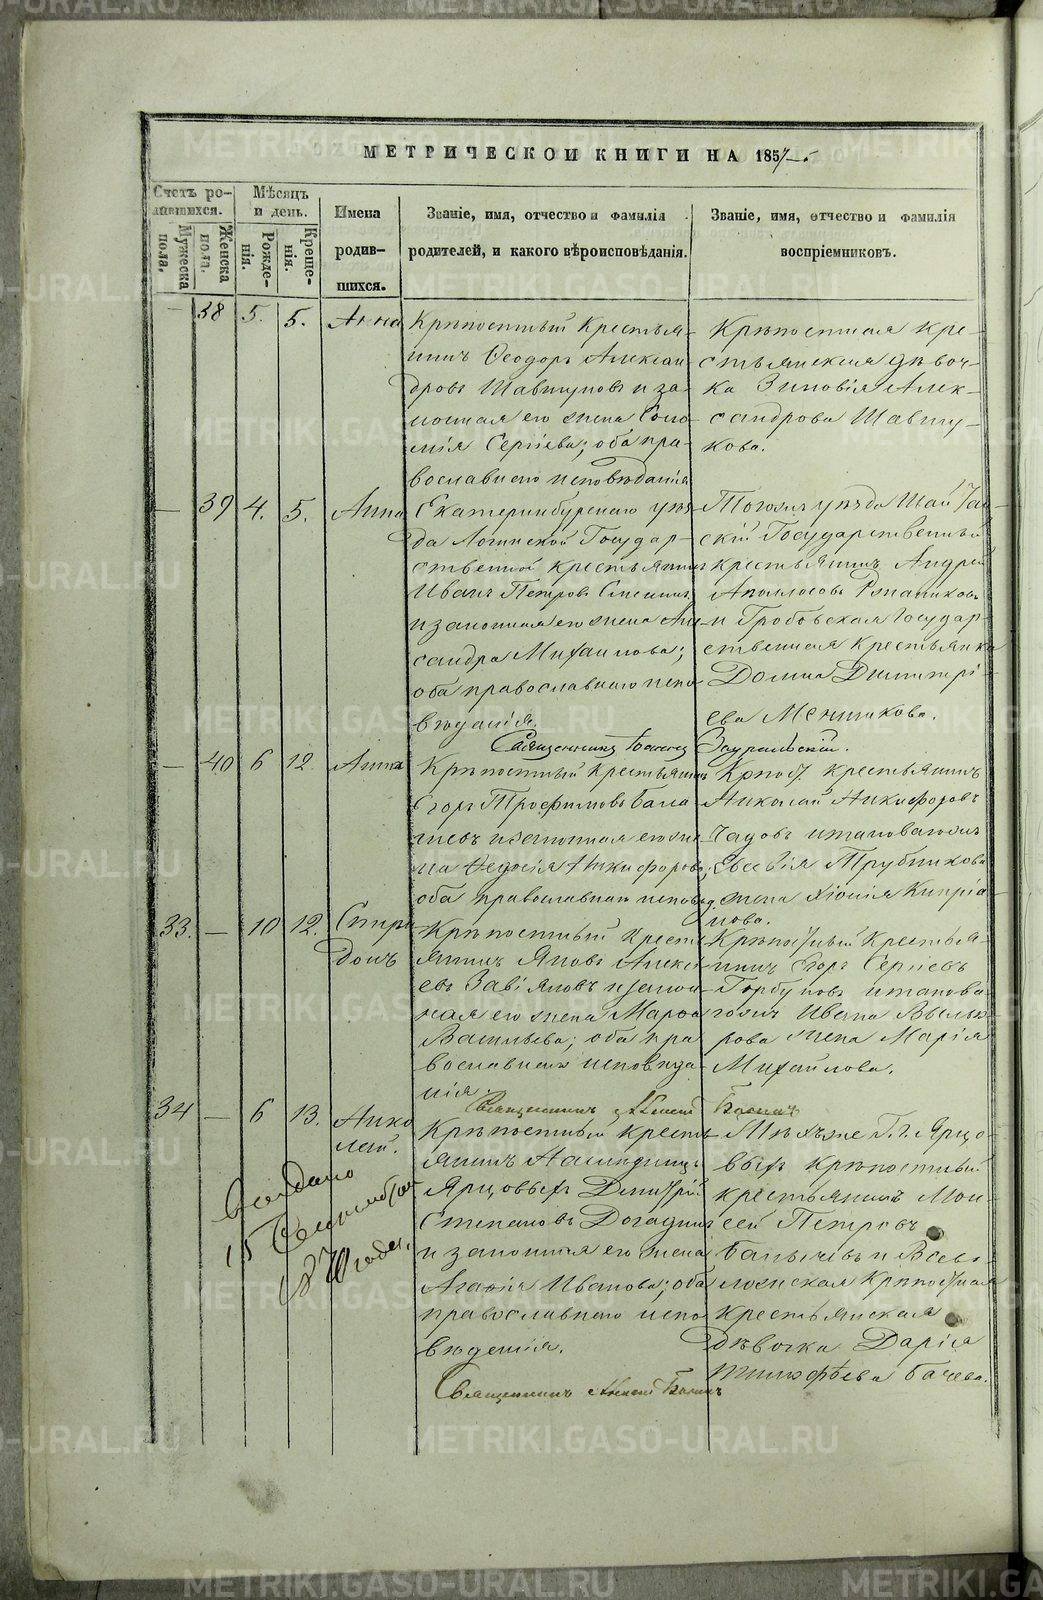 МЕТРИЧЕСКОЙ КНИГИ НА 1857
Счетъ родившихся.
Мѣсяцъ и день.
Имена родившихся.
Званіе, имя, отчество и фамилія родителей, и какого вѣроисповѣданія.
Званіе, имя, отчество и фамилія воспріемниковъ.
Мужеска пола.
Женска пола.
Рожденія.
Крещенія.
38 5. 5. Анна
Крѣпостный Крестья-
нинъ Ѳеодоръ Алексан
дровъ Шавкуновъ и за-
конная его жена Соло
мія Сергіева; оба пра-
вославнаго исповѣданія
Крѣпостная кре-
стьянская дѣвоч-
ка Зиновія Алек-
сандрова Шавку-
нова.
39 4. 5. Анна
Екатеринбурскаго уѣз
да Государ-
ственной крестьянинъ
Иванъ Петровъ
и законная его жена Але
сандра Михаилова;
оба православнаго испо
вѣданія.
Тогожъ уѣзда
скій Государственный
крестьянинъ Андрей
и Гробовская Государ-
ственная Крестьянка
Домна Димитрі-
ева Меншикова.
Священникъ Іоаннъ Зауральскій.
40 6 12. Анна
Крѣпостный Крестьянинъ
Егоръ Трофимовъ
и законная его же
на Ѳедосія Никифорова;
оба православнаго исповѣд.
Крѣпост. крестьянинъ
Николай Никифоровъ
Чадовъ и таковагожъ
Евсевія Трубникова
жена Хіонія Кипріа
нова.
33. 10 12. Спири
донъ
Крѣпостный Кресть
янинъ Яковъ Алексѣ
евъ Завіяловъ и закон
ная его жена Марѳа
Васильева; оба пра
вославнаго исповѣда
нія.
Крѣпостный Крестья-
нинъ Егоръ Сергіевъ
Горбуновъ и такова
гожъ Ивана
рова жена Марія
Михайлова.
Священникъ Алексій
34 6 13. Нико
лай.
Крѣпостный кресть
янинъ Наслѣдницъ
Ярцовыхъ Димитрій
Степановъ Догадинъ
и законная его жена
Агафія Иванова; оба
православнаго испо
вѣденія.
Тѣхъже Г.г. Ярцо
выхъ крѣпостный
крестьянинъ Мои
сей Петровъ
и Всево
ложская Крѣпостная
крестьянская
дѣвочка Дарія
Тимофѣева
Священникъ Алексій